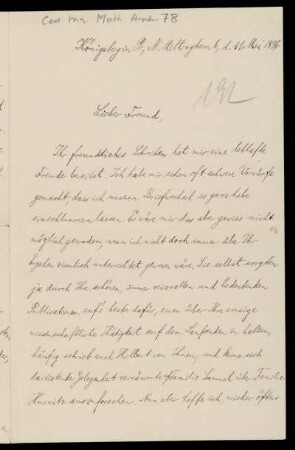 Cod. Ms. Math. Arch. 78
Königsberg Pr, Mitteltragheim 6, d. 11. Mai 1896
192
Lieber Freund,
Ihr freundliches Schreiben hat mir eine lebhafte
Freude bereitet. Ich habe mir schon oft schwere Vorwürfe
gemacht, dass ich unseren Briefwechsel so ganz habe
einschlummern lassen. Es wäre mir das aber gewiss nicht
möglich geworden, wenn ich nicht doch immer über Ihr
Ergehen ziemlich unterrichtet gewesen wäre. Sie selbst sorgten
ja durch Ihre schönen, immer reizvollen und bedeutenden
Publicationen aufs beste dafür, einen über Ihre
wissenschaftliche Thätigkeit auf dem Laufenden zu halten,
häufig schrieb auch Hilbert von Ihnen, und keine sich
darbietende Gelegenheit versäumte Familie Samuel über Familie
Hurwitz auszuforschen. Nun aber hoffe ich wieder öfters